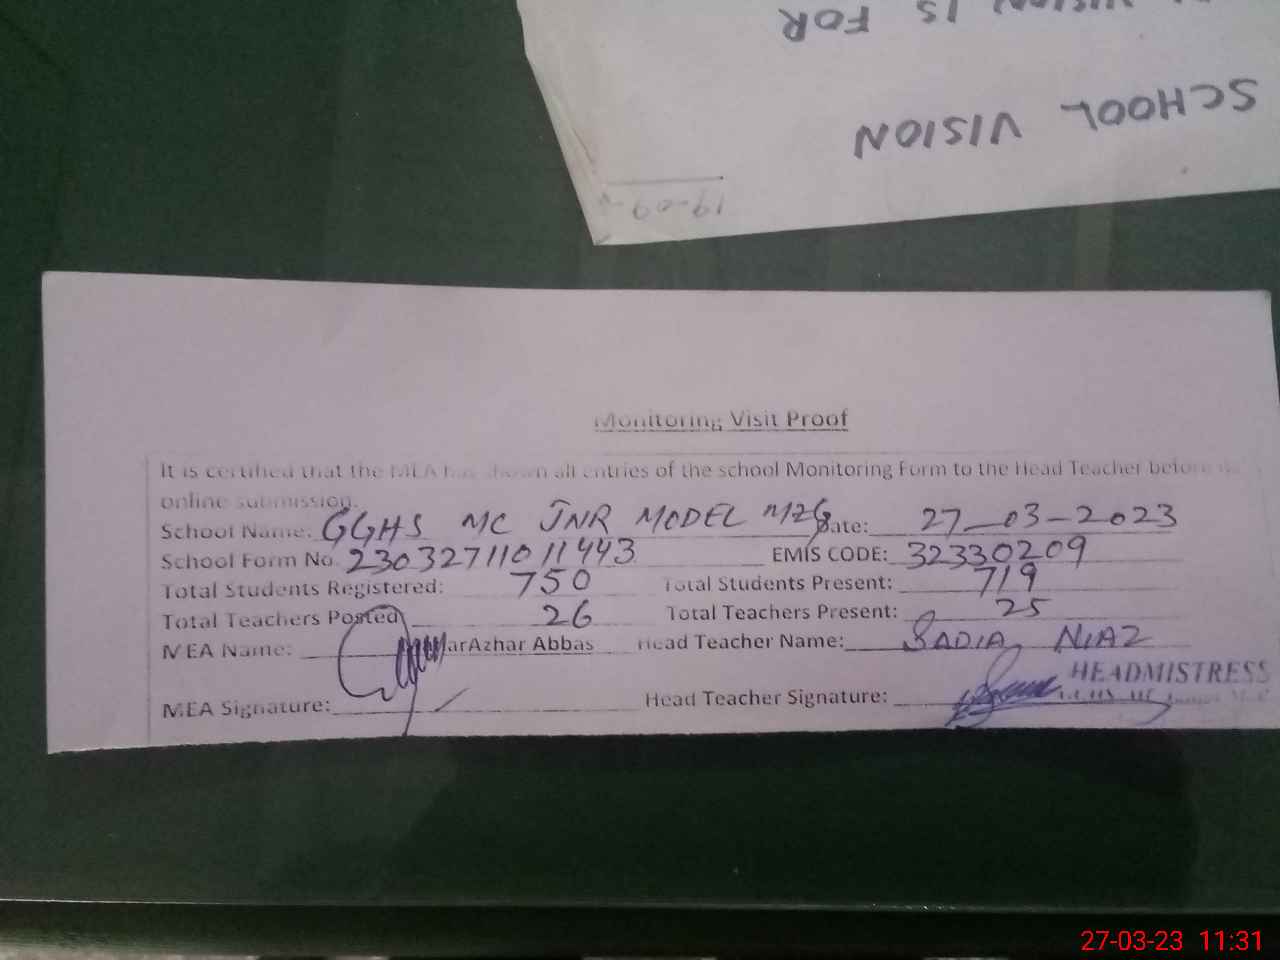 VISION IS FOR
SCHOOL VISION
19-09-
Monitoring Visit Proof
It is certified that the MEA has shown all entries of the school Monitoring Form to the Head Teacher before
online submission.
School Name: GGHS MC JNR MODEL MZG Date: 27-03-2023
School Form No. 23032711011443 EMIS CODE: 32330209
Total Students Registered: 750 Total Students Present: 719
Total Teachers Posted 26 Total Teachers Present: 25
MEA Name: arAzhar Abbas Head Teacher Name: SADIA NIAZ
HEADMISTRESS
MEA Signature: Head Teacher Signature:
27-03-23 11:31